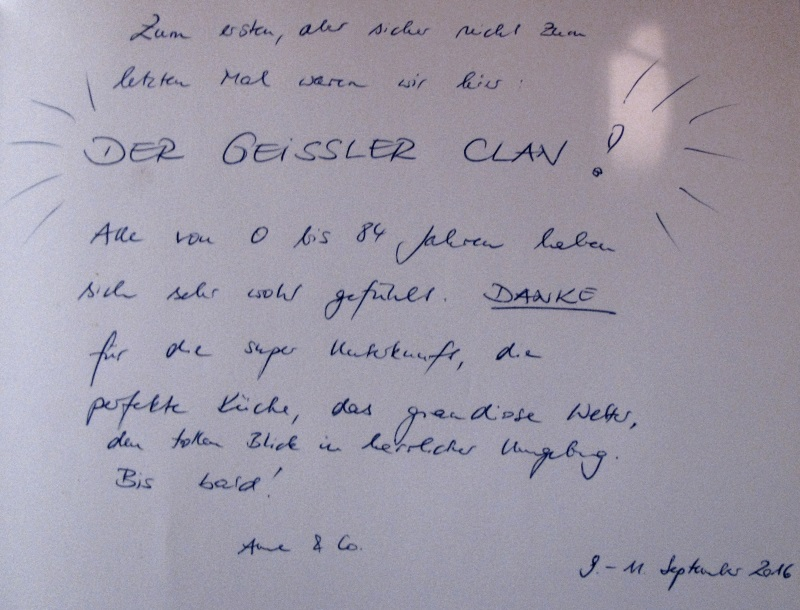 Zum ersten, aber sicher nicht zum
letzten Mal waren wir hier:
DER GEISSLER CLAN!
Alle von 0 bis 84 Jahren haben
sich sehr wohl gefühlt. DANKE
für die super Unterkunft, die
perfekte Küche, das grandiose Wetter,
den tollen Blick in herrlicher Umgebung.
Bis bald!
Anne & Co.
9.-11. September 2016